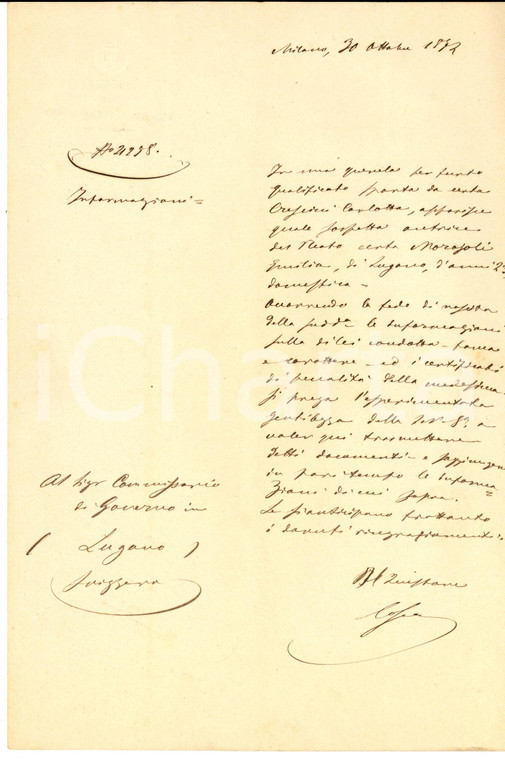 Milano, 30 Ottobre 1872
No 21998.
Informazioni =
In una querela per furto
qualificato sporta da certa
Crescini Carlotta, apparisce
quale sospetta autrice
del Reato certa Morasoli
Emilia, di Lugano, d'anni
domestica -
Occorrendo la fede di nascita
della sudda le informazioni
sulla di lei condotta - fama
e carattere - ed i certificati
di penalità della medesima
si prega l'esperimentata
gentilezza della S. V. a
voler qui trasmettere
detti documenti - e soggiungere
in pari tempo le informa=
zioni di cui sopra.
Le si anticipano frattanto
i dovuti ringraziamenti.
Al Sigr Commissario
di Governo in
( Lugano )
Svizzera
Il Questore
iCharta